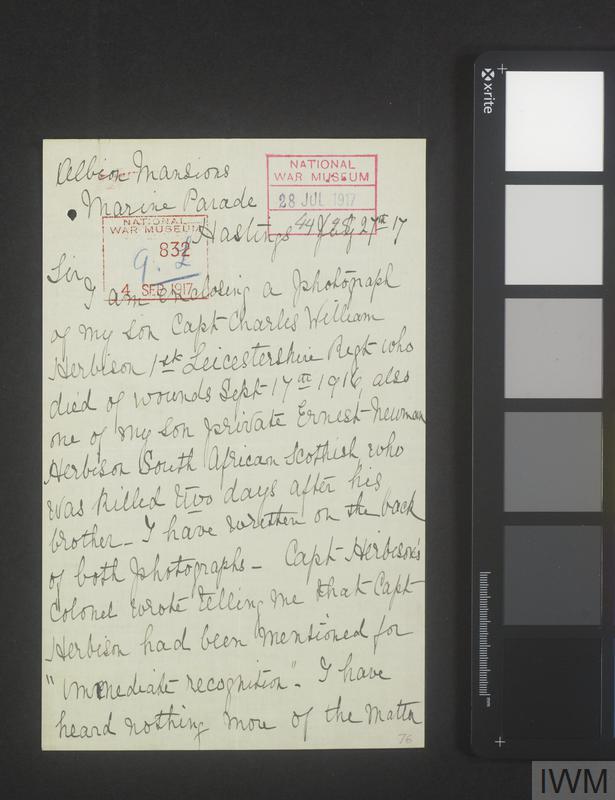 Albion Mansions
Marine Parade
Hastings July 27th 17
NATIONAL
WAR MUSEUM
28 JUL 1917
NATIONAL
WAR MUSEUM
832
4 SEP 1917
Sir,
I am enclosing a photograph
of my son Capt Charles William
Herbison 1st Leicestershire Regt who
died of wounds Sept 17th 1916, also
one of my son private Ernest Newman
Herbison South African Scottish who
was killed two days after his
brother - I have written on the back
of both photographs - Capt Herbison's
Colonel wrote telling me that Capt
Herbison had been mentioned for
"immediate recognition". I have
heard nothing more of the matter
76
x-rite
mm
IWM